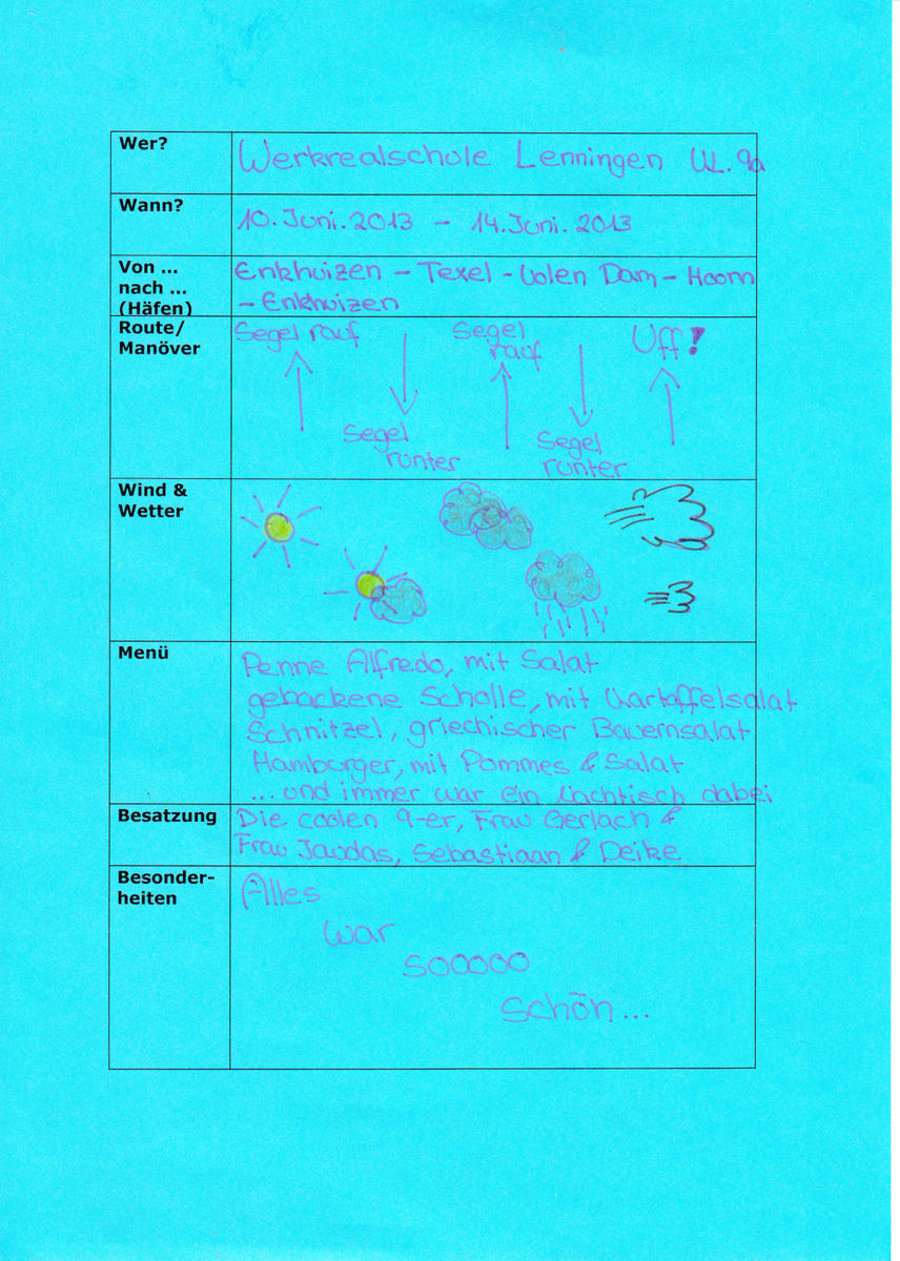 Wer?
Werkrealschole Lenningen UL. 9a
Wann?
10. Juni. 2013 - 14. Juni. 2013
Von ...
nach ...
(Häfen)
Enkhuizen - Texel - Volen Dam - Hoorn
- Enkhuizen
Route/
Manöver
Segel rauf
Segel
rauf
Uff!
Segel
runter
Segel
runter
Wind &
Wetter
Menü
Penne Alfredo, mit Salat
gebackene Scholle, mit Kartoffelsalat
Schnitzel, griechischer Bauernsalat
Hamburger, mit Pommes & Salat
... und immer war ein Nachtisch dabei
Besatzung
Die coolen 9-er, Frau Gerlach &
Frau Jaudas, Sebastiaan & Deike
Besonder-
heiten
Alles
war
sooooo
schön...